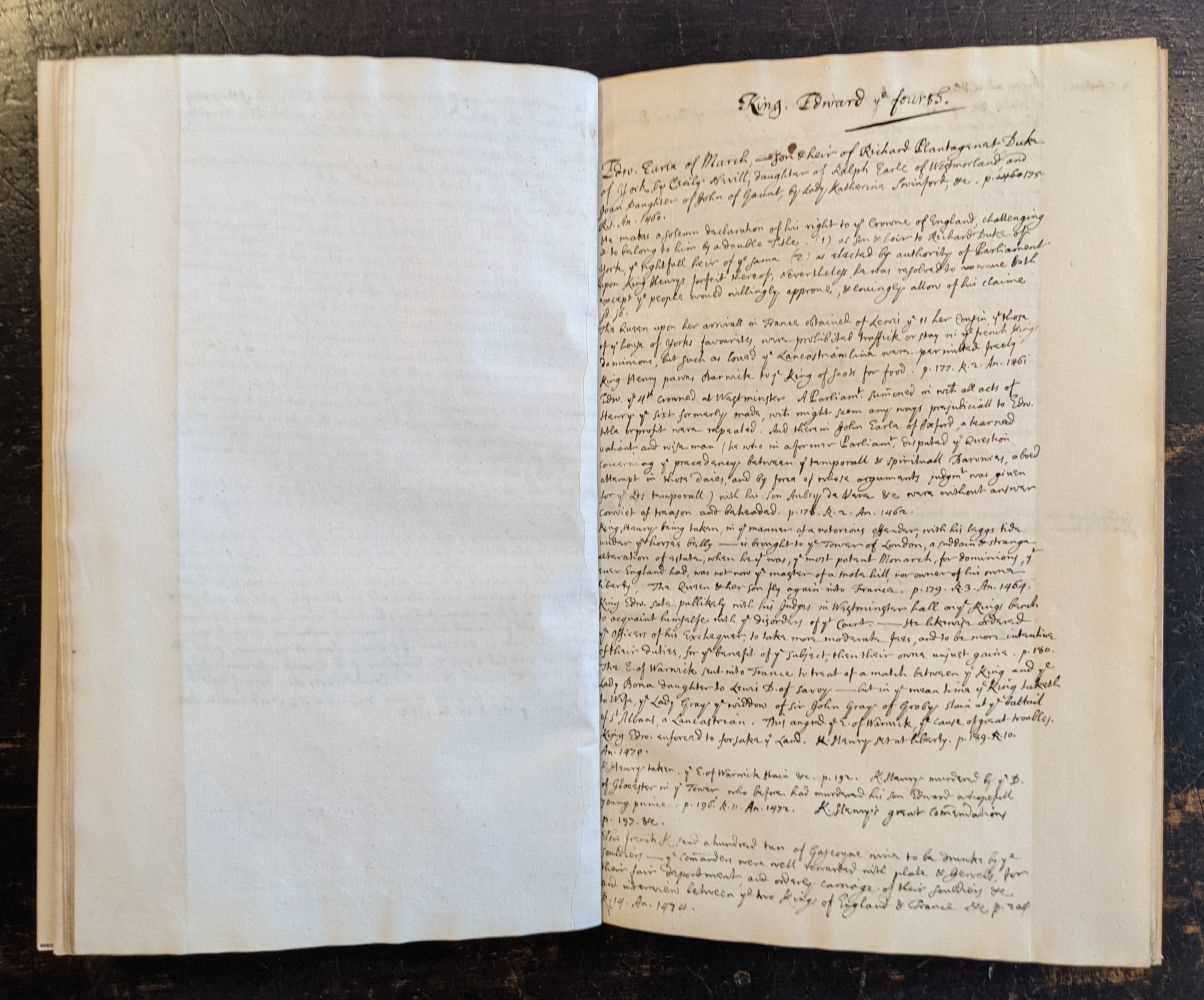 King. Edward yᵉ fourth.
Edw. Earle of March, — son & heir of Richard Plantagenet Duke
of York, by Cecily Nevill, daughter of Ralph Earle of Westmorland and
Joan Daughter of John of Gaunt, by Lady Katherine Swinfort, &c. p.
An. 1460.
He makes a solemn declaration of his right to yᵉ Crowne of England, challenging
it to belong to him by a double Title. 1) as son & heir to Richard Duke of
York, yᵉ rightfull heir of yᵉ same (2) as elected by authority of Parliament
upon King Henrys forfeit thereof, Nevertheless he was resolved to
except yᵉ people would willingly approve, & lovingly allow of his claime
The Queen upon her arrival in France obtained of Lewis yᵉ 11 her Cousin yᵗ those
of yᵉ house of Yorks favourites, were prohibited traffick or stay in yᵉ french Kings
dominions, but such as loved yᵉ Lancastrian line were permitted freely
King Henry pawns Barwick to yᵉ King of Scots for food. p. 177. R. 2. An. 1461
Edw. yᵉ 4ᵗʰ crowned at Westminster. A Parliamᵗ. sum̄oned in wᶜʰ all acts of
Henry yᵉ sixt formerly made, wᶜʰ might seem any ways prejudiciall to Edw.
title or profit were repealed. And therein John Earle of Oxford, a learned
valiant and wise man (he who in a former Parliamᵗ, disputed yᵉ Question
concerning yᵉ precedency between yᵉ temporall & spirituall Baronies, a bold
attempt in those daies, and by force of whose arguments judgmᵗ was given
for yᵉ Lds temporall) with his son Aubry de Vere &c were without answer
convict of treason and beheaded. p. 178. R. 2. An. 1462.
King Henry being taken in yᵉ manner of a notorious offender, with his leggs tide
under yᵉ horses belly — is brought to yᵉ Tower of London, a suddain & strange
alteration of estate, when he yᵗ was, yᵉ most potent Monarch, for dominions, yᵗ
ever England had, was not now yᵉ master of a mole hill, nor owner of his owne
liberty. The Queen & her son fly again into France. p. 179. R. 3. An. 1464.
King Edw. sate publikely with his Judges in Westminster hall on yᵉ Kings bench
to acquaint himselfe with yᵉ disorders of yᵗ Court. — He likewise ordered
yᵉ officers of his Exchequer, to take more moderate fees, and to be more intentive
of their duties, for yᵉ benefit of yᵉ subject, then their owne unjust gaine. p. 180.
The E. of Warwick sent into France to treat of a match between yᵉ King and yᵉ
Lady Bona daughter to Lewis D. of Savoy — but in yᵉ mean time yᵉ King taketh
to Wife, yᵉ Lady Gray yᵉ widdow of Sir John Gray of Groby slain at yᵉ battail
of Sᵗ Albans, a Lancastrian. This angred yᵉ E. of Warwick, yᵉ cause of great troubles.
King Edw. enforced to forsake yᵉ Land. K. Henry set at liberty. p. 189. R. 10.
An. 1470.
K. Henry taken. yᵉ E. of Warwick slain &c. p. 192. K. Henry murdered by yᵉ D.
of Glocester in yᵉ Tower who before had murdered his son Edward a hopefull
young prince. p. 196. R. 11. An. 1472. K. Henry's great com̄endations
p. 197. &c.
french K. send a hundred tun of Gascoyne wine to be drunke by yᵉ
souldiers — yᵉ com̄anders were well rewarded with plate & Jewels, for
their fair deportment, and orderly carriage of their souldiers &c
and interview between yᵉ two Kings of England & France &c p.
R. 14. An. 1474.